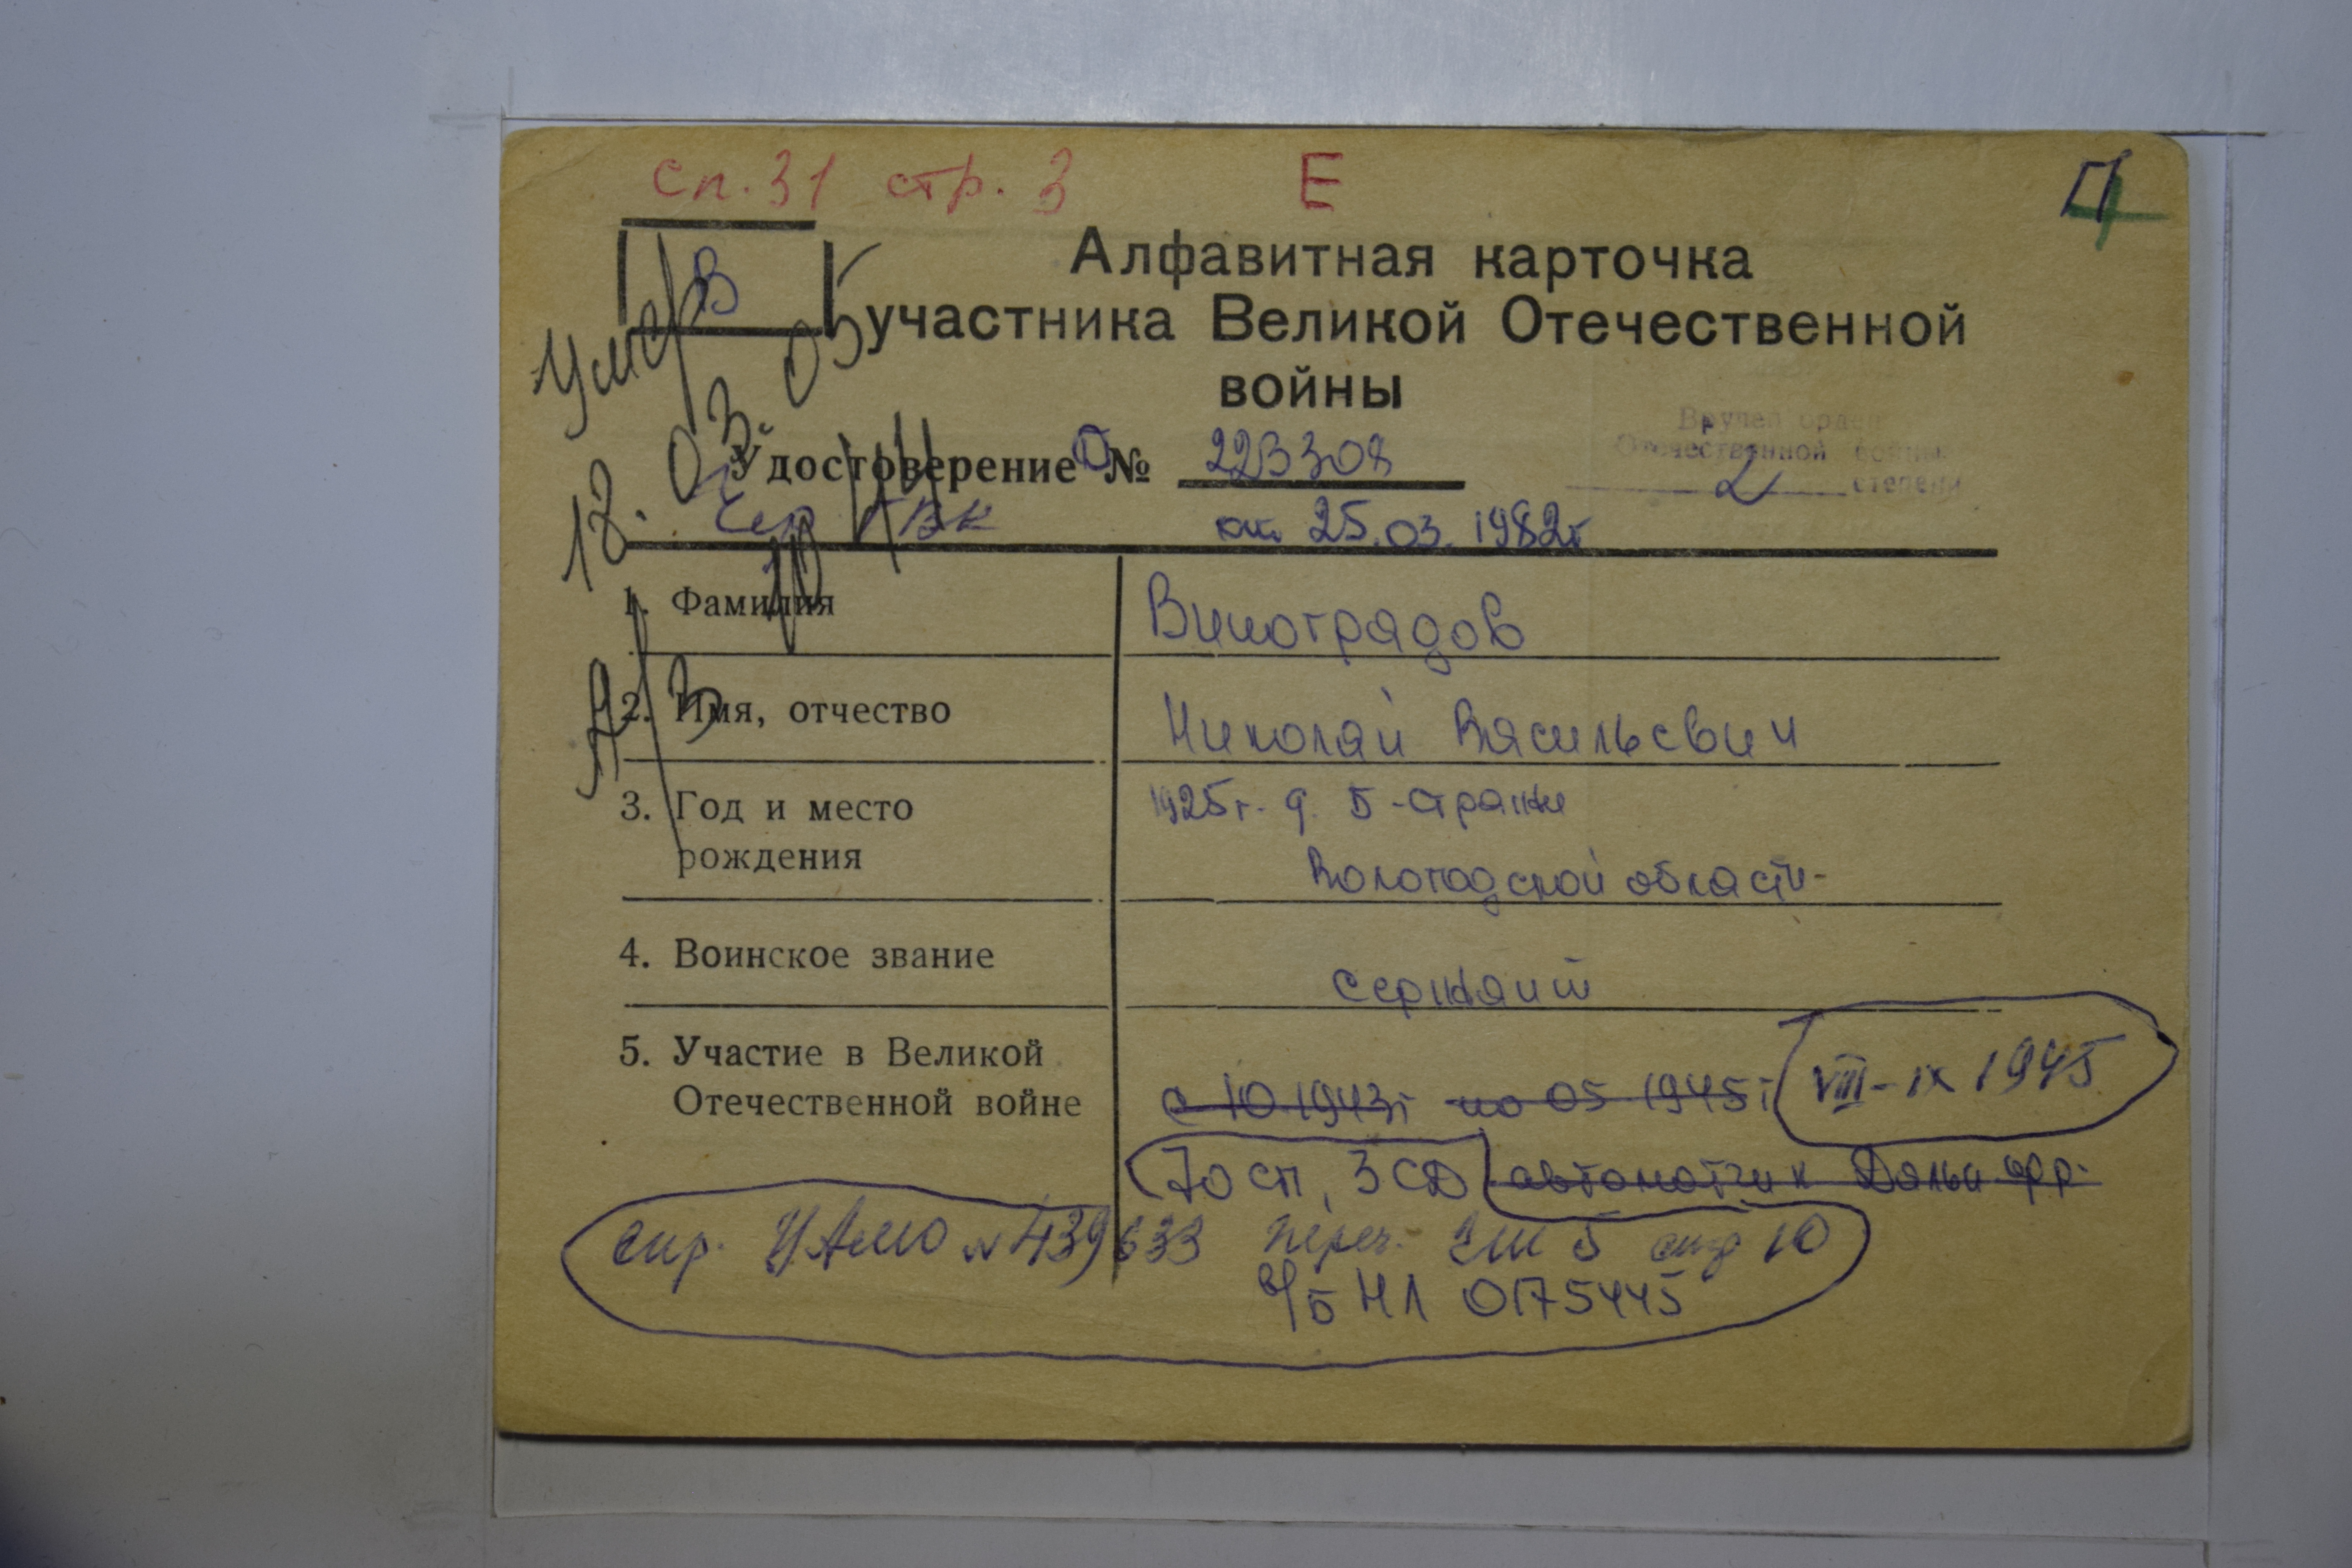 сп. 31 стр. 3 Е
В
Алфавитная карточка
участника Великой Отечественной
войны
умер
12. 03. 05
Вручен орден
Отечественной войны
2 степени
Удостоверение О № 223308
Чер ГВК от 25.03.1982г
1. Фамилия
Виноградов
2. Имя, отчество
Николай Васильевич
3. Год и место
рождения
1925г. д. Б-Стражи
Вологодской области
4. Воинское звание
сержант
5. Участие в Великой
Отечественной войне
с 10.1943г по 05 1945г VIII-IX 1945
70 сп, 3 СД автоматчик Дальн. фр.
спр. ЦАМО № 439633 переч. ГШ 5 стр 10
в/б НЛ 0175445